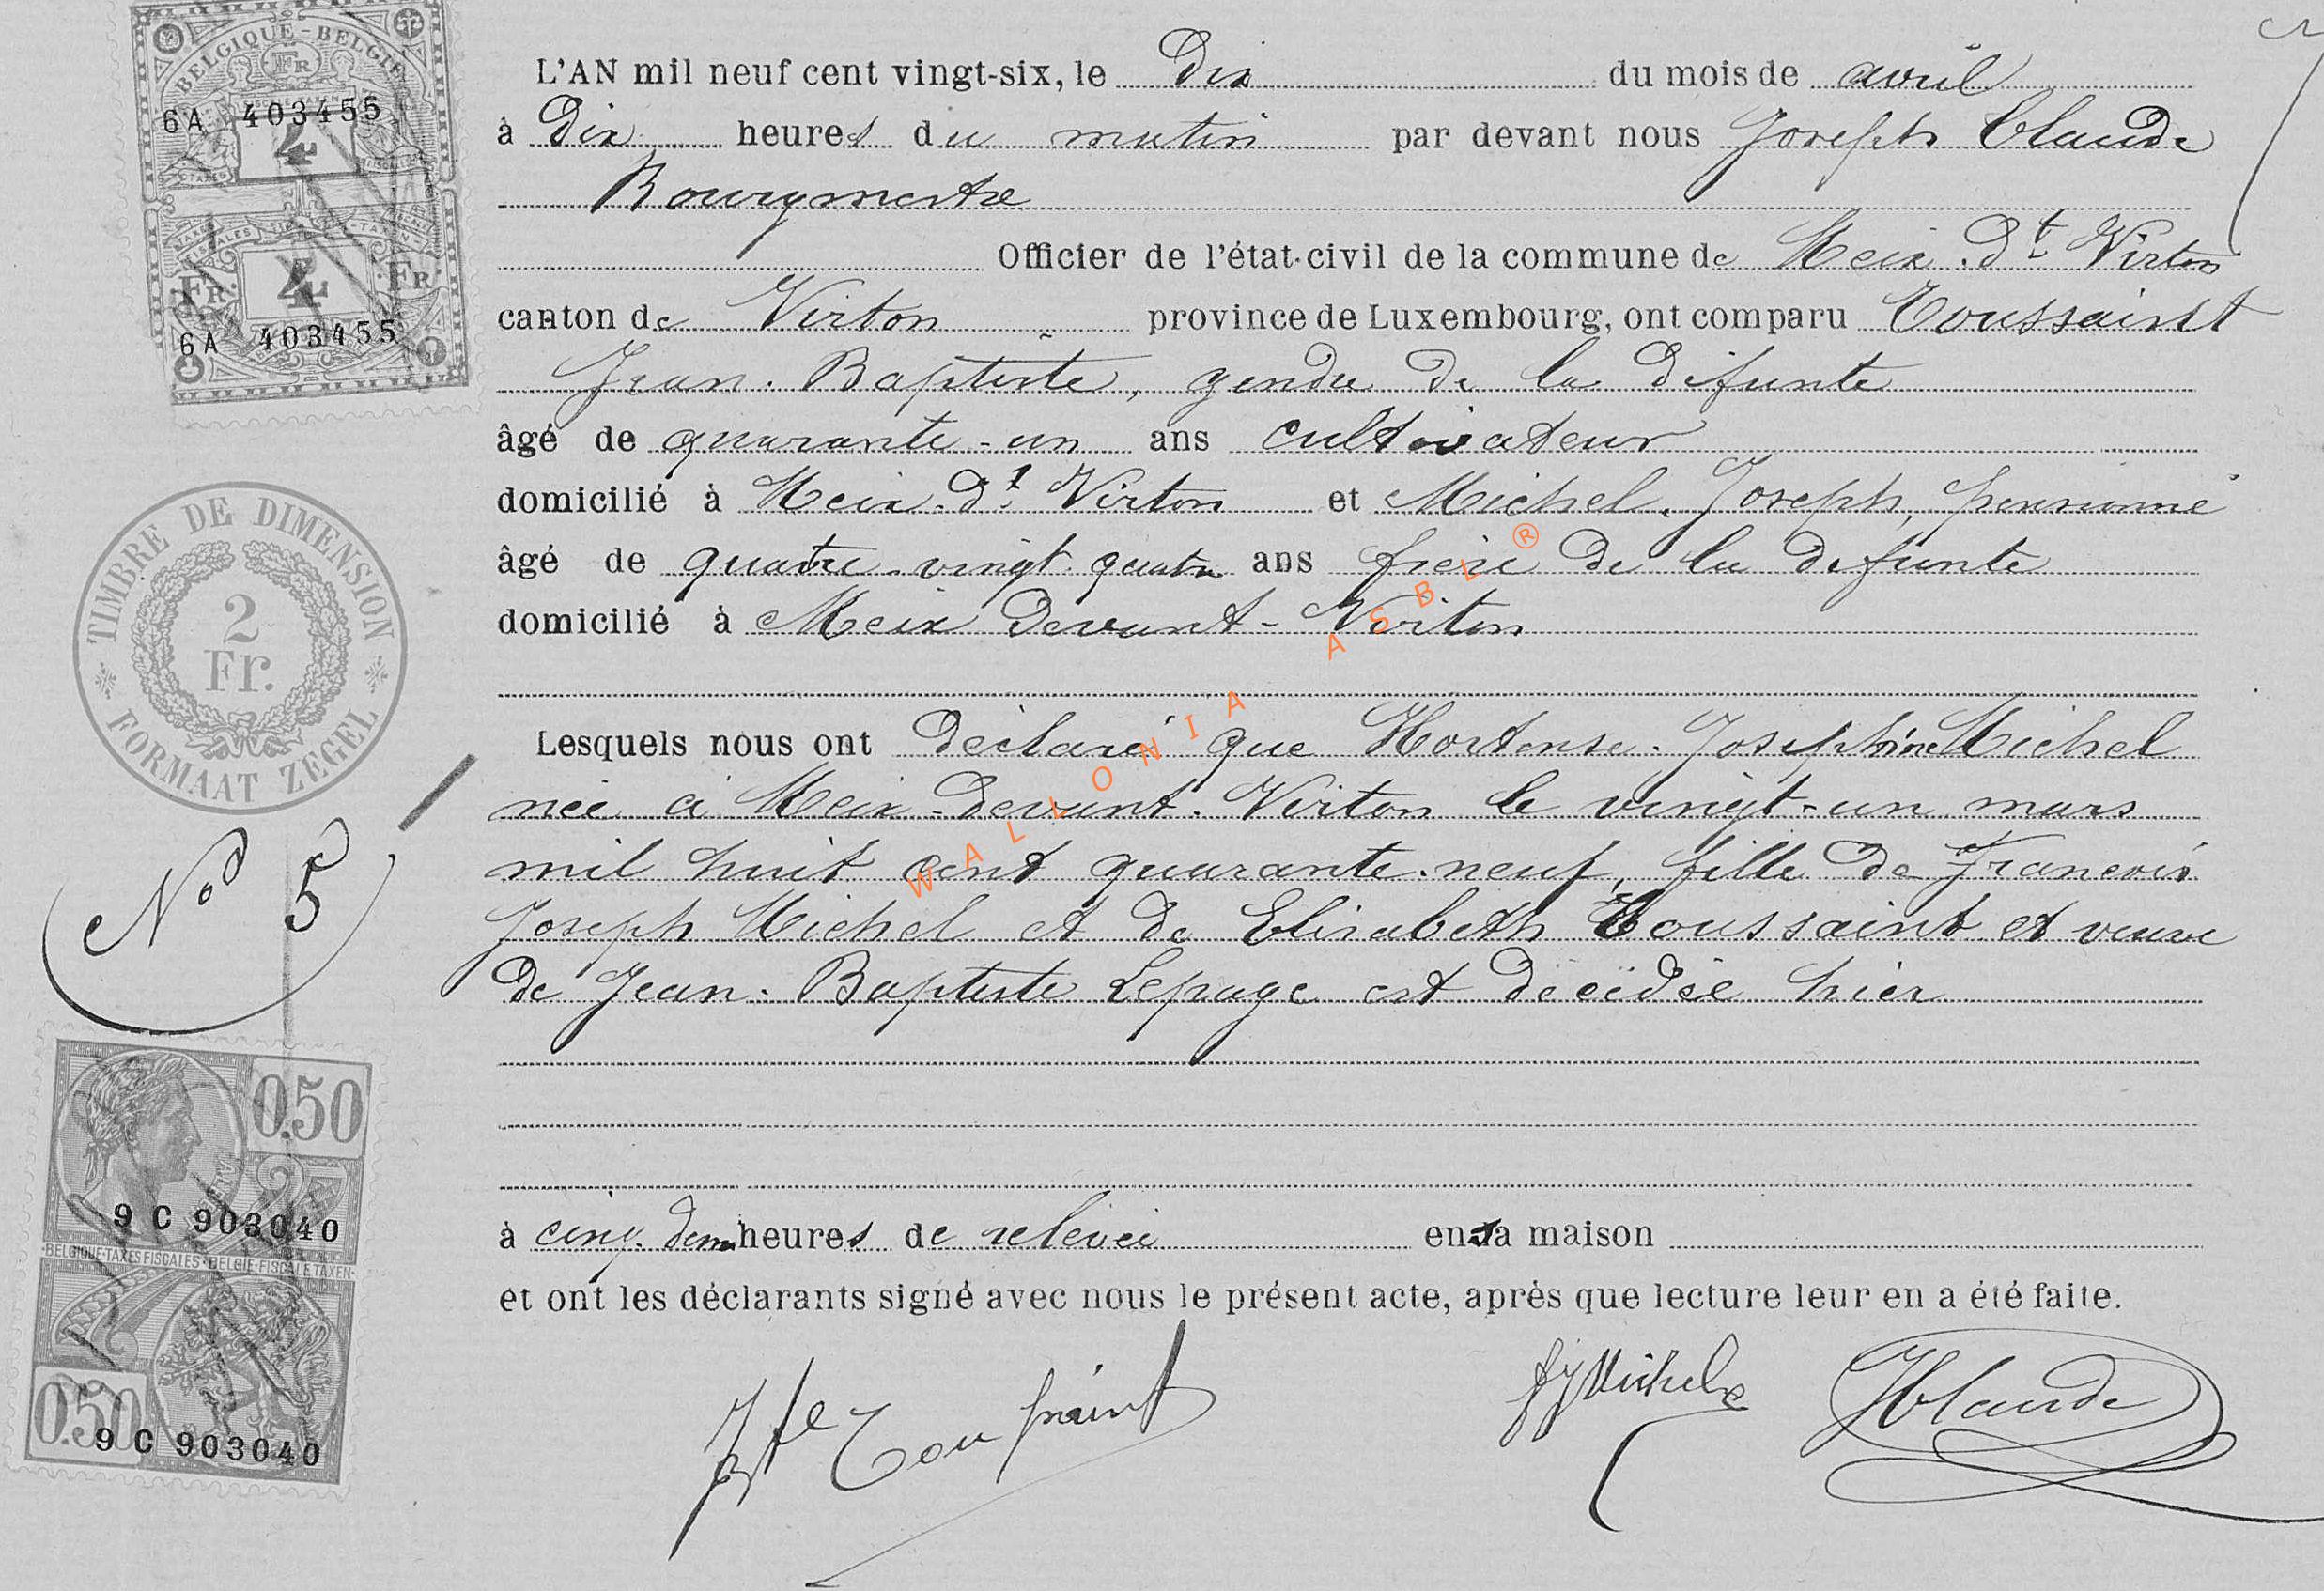 BELGIQUE-BELGIE
FR
6A 403455
4
FR. 4 FR
6A 403455
L'AN mil neuf cent vingt-six, le Dix du mois de avril
à Dix heures du matin par devant nous Joseph Claude
Bourgmestre
Officier de l'état-civil de la commune de Meix-Dt Virton
canton de Virton province de Luxembourg, ont comparu Toussaint
Jean-Baptiste, gendre de la défunte
âgé de quarante-un ans cultivateur
domicilié à Meix-Dt Virton et Michel, Joseph, pensionné
âgé de quatre-vingt-quatre ans frère de la défunte
domicilié à Meix Devant-Virton
TIMBRE DE DIMENSION
2
Fr.
FORMAAT ZEGEL
Lesquels nous ont déclaré que Hortense-Joséphine Michel
née à Meix-devant-Virton le vingt-un mars
mil huit cent quarante-neuf, fille de François
Joseph Michel et de Elisabeth Toussaint et veuve
de Jean-Baptiste Lepage est décédée hier
No 5
0.50
9 C 903040
BELGIQUE·TAXES FISCALES·BELGIE·FISCALE TAXEN
0.50
9 C 903040
à cinq demi heures de relevée en sa maison
et ont les déclarants signé avec nous le présent acte, après que lecture leur en a été faite.
JBte Toussaint fJMichel JClaude
WALLONIA ASBL ®